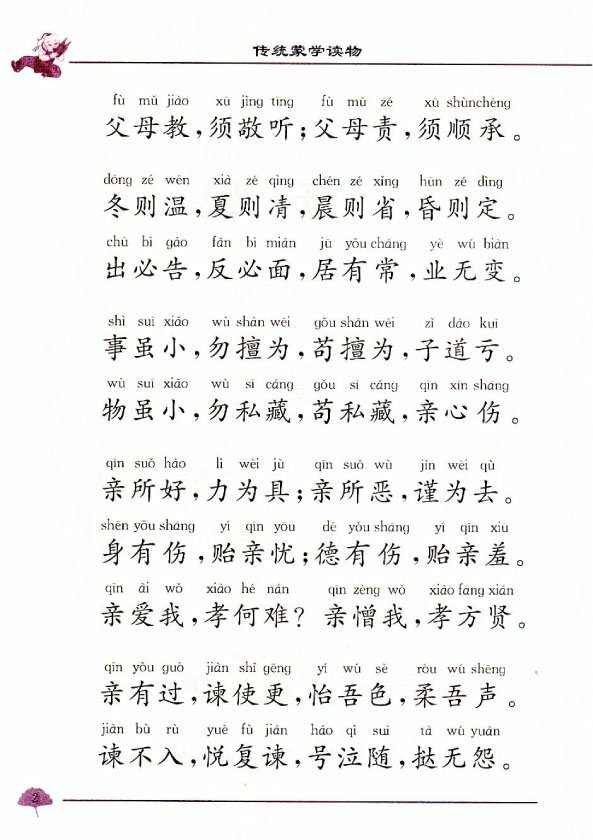 传统蒙学读物
fù mǔ jiào xū jìng tīng fù mǔ zé xū shùnchéng
父母教，须敬听；父母责，须顺承。
dōng zé wēn xià zé qìng chén zé xǐng hūn zé dìng
冬则温，夏则凊，晨则省，昏则定。
chū bì gào fǎn bì miàn jū yǒu cháng yè wú biàn
出必告，反必面，居有常，业无变。
shì suī xiǎo wù shàn wéi gǒu shàn wéi zǐ dào kuī
事虽小，勿擅为，苟擅为，子道亏。
wù suī xiǎo wù sī cáng gǒu sī cáng qīn xīn shāng
物虽小，勿私藏，苟私藏，亲心伤。
qīn suǒ hào lì wèi jù qīn suǒ wù jǐn wèi qù
亲所好，力为具；亲所恶，谨为去。
shēn yǒu shāng yí qīn yōu dé yǒu shāng yí qīn xiū
身有伤，贻亲忧；德有伤，贻亲羞。
qīn ài wǒ xiào hé nán qīn zèng wǒ xiào fāng xián
亲爱我，孝何难？亲憎我，孝方贤。
qīn yǒu guò jiàn shǐ gēng yí wú sè róu wú shēng
亲有过，谏使更，怡吾色，柔吾声。
jiàn bù rù yuè fù jiàn háo qì suí tà wú yuàn
谏不入，悦复谏，号泣随，挞无怨。
2